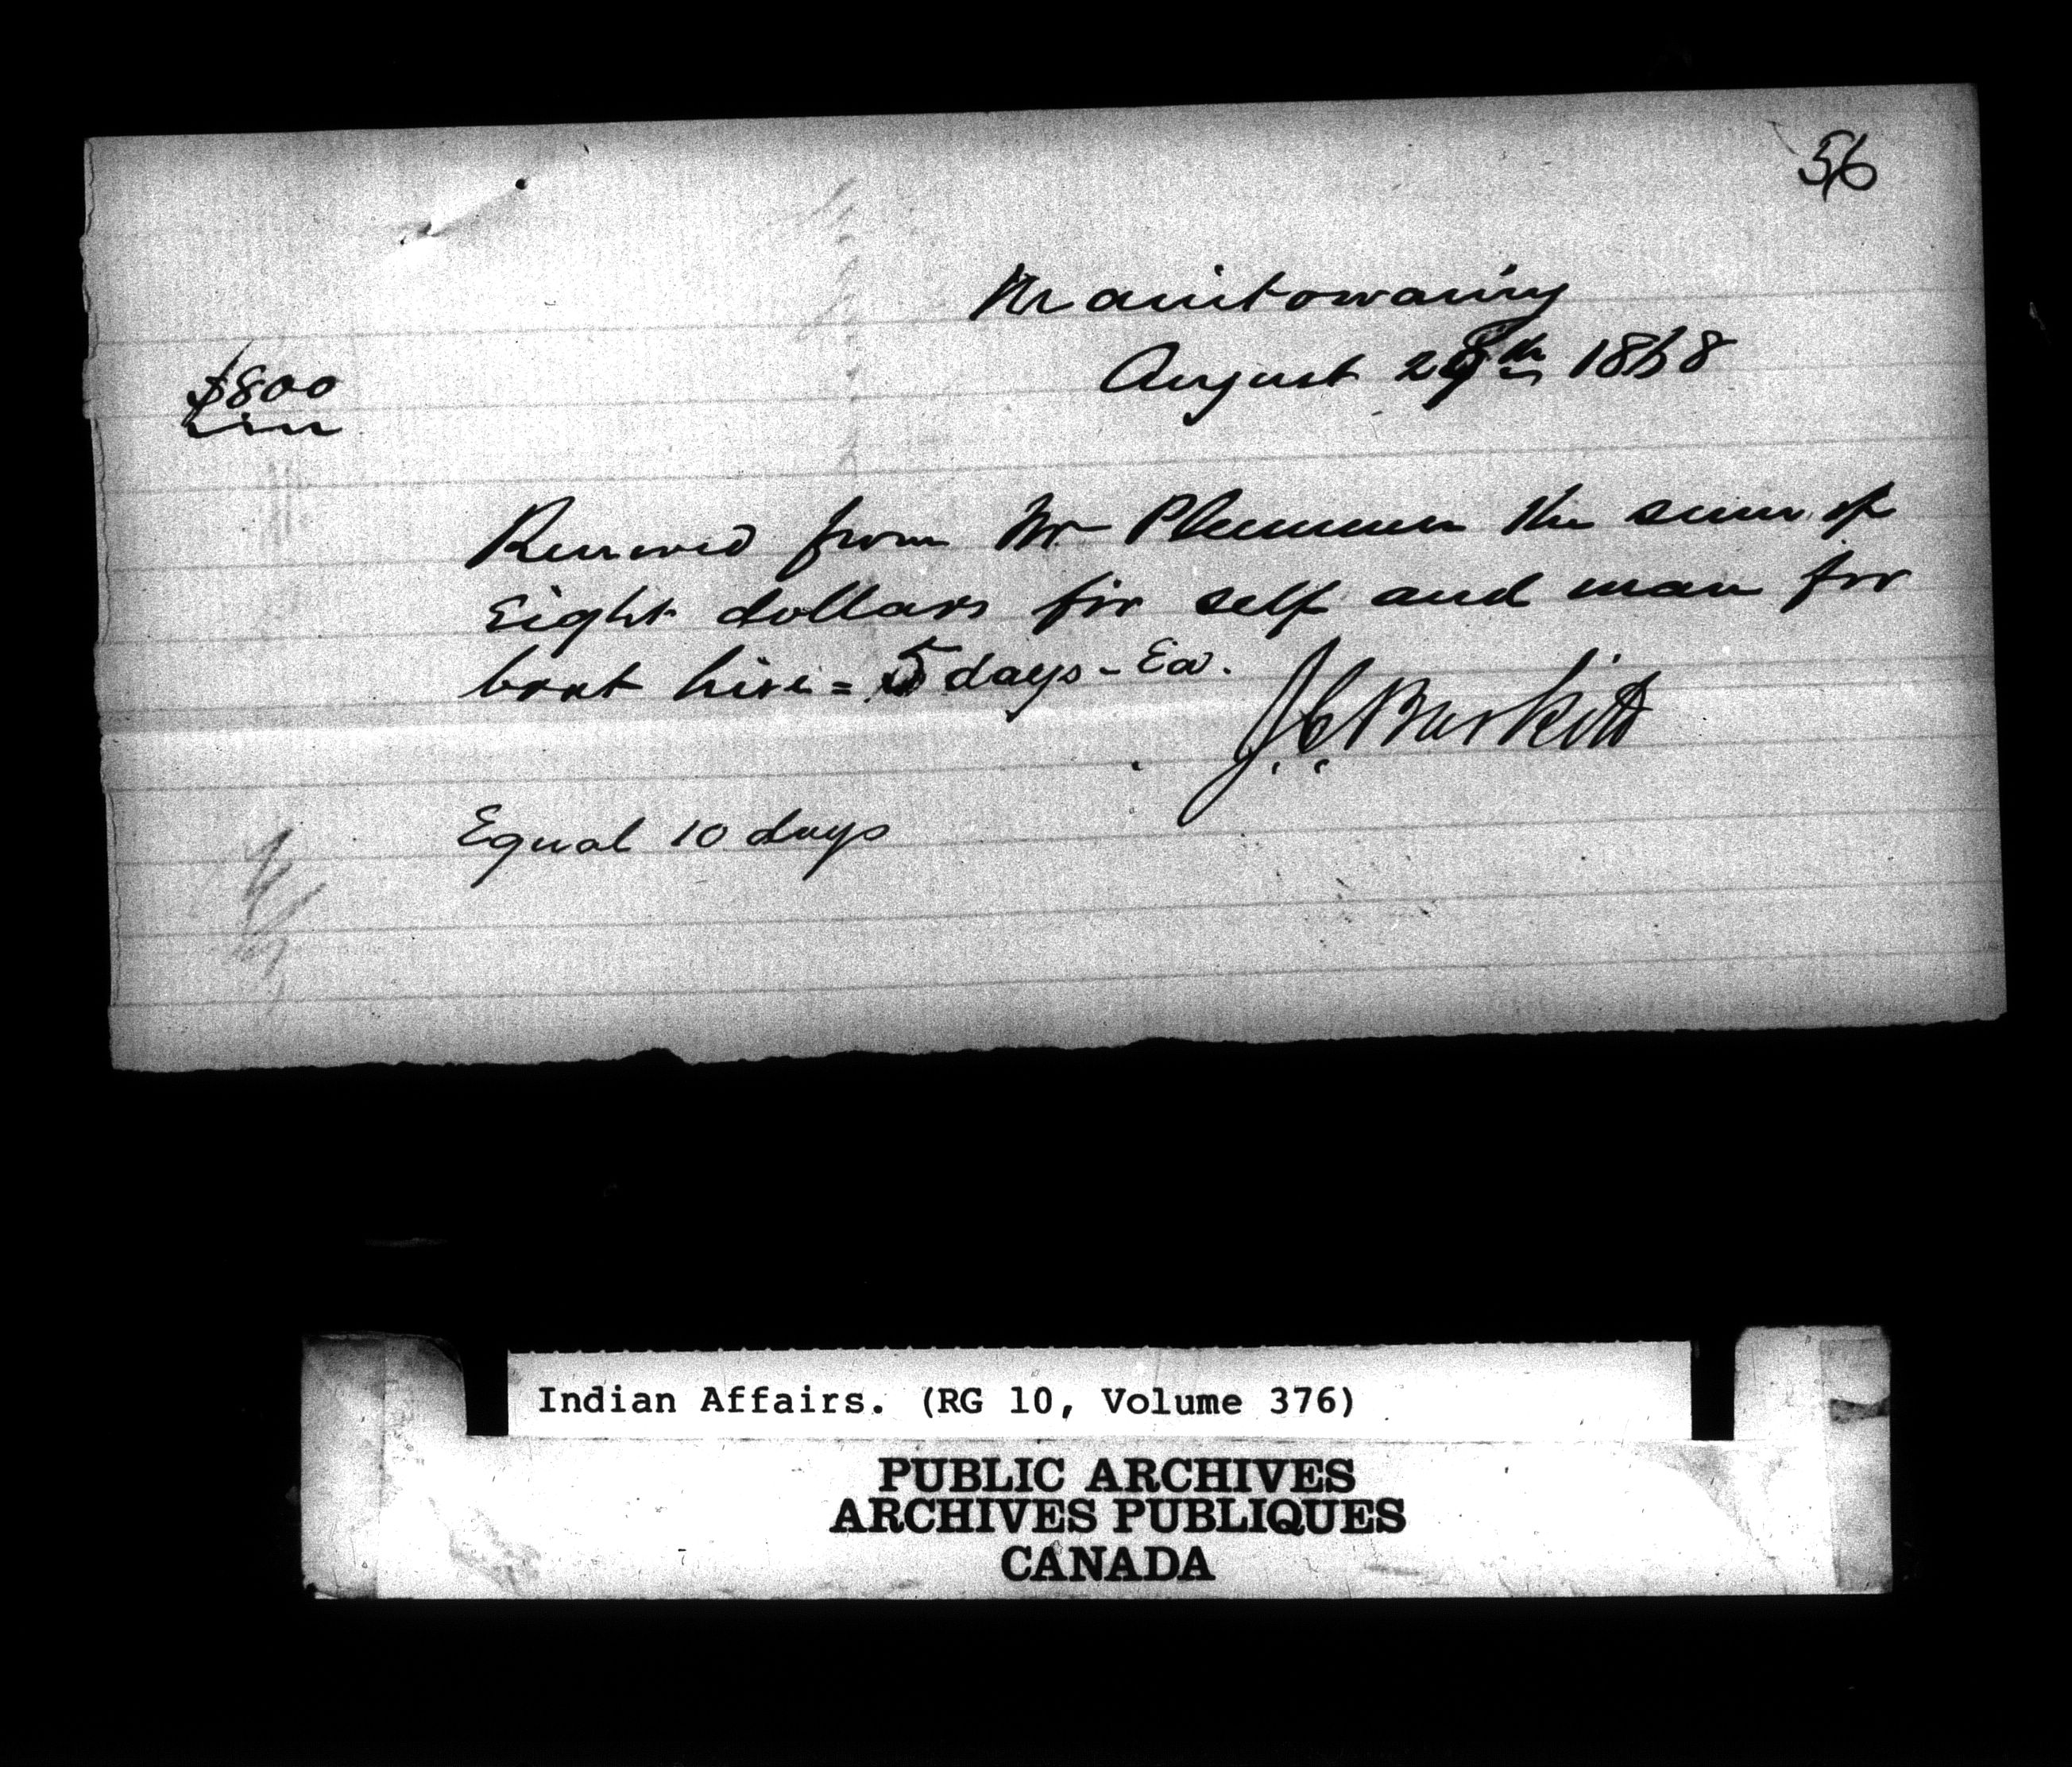 56
Manitowaning
August 28th 1868
$800
Received from Mr Plummer the sum of
Eight dollars for self and man for
boat hire = 5 days - Ea.
J.C. Burkitt
Equal 10 days
Indian Affairs. (RG 10, Volume 376)
PUBLIC ARCHIVES
ARCHIVES PUBLIQUES
CANADA